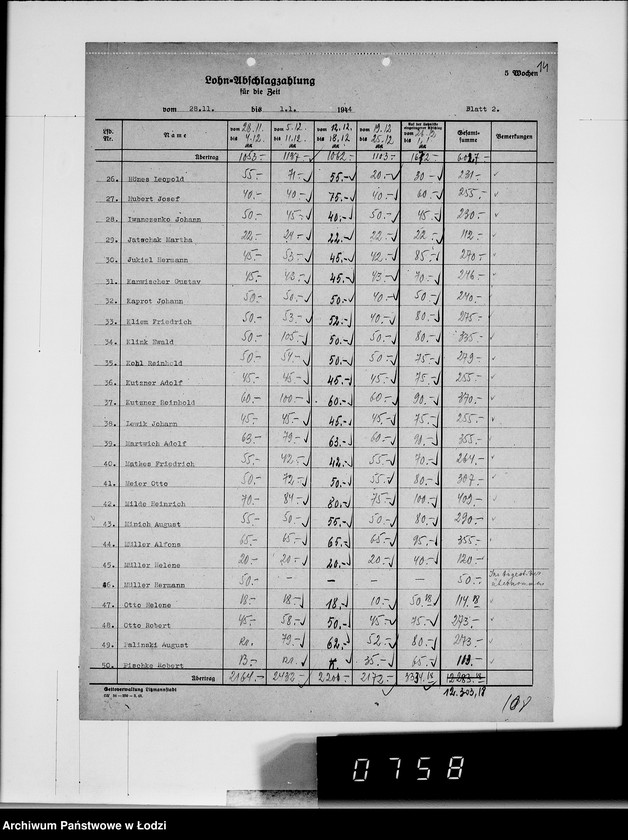 14
5 Wochen
Lohn-Abschlagzahlung
für die Zeit
vom 28.11. bis 1.1. 1944 Blatt 2.
Lfd. Nr. Name vom 28.11. bis 4.12. vom 5.12. bis 11.12. vom 12.12. bis 18.12. vom 19.12 bis 25.12 bis 1.1. Gesamtsumme Bemerkungen
Übertrag 1053.- 1197.- 1062.- 1103.- 1612.- 6027.-
26. Hünes Leopold 55.- 71.- 55.- 20.- 30.- 231.-
27. Hubert Josef 40.- 40.- 75.- 40.- 60.- 255.-
28. Iwanczenko Johann 50.- 45.- 40.- 50.- 45.- 230.-
29. Jatschak Martha 22.- 24.- 22.- 22.- 22.- 112.-
30. Jukiel Hermann 45.- 53.- 45.- 42.- 85.- 270.-
31. Kanwischer Gustav 45.- 43.- 45.- 43.- 70.- 246.-
32. Kaprot Johann 50.- 50.- 50.- 40.- 50.- 240.-
33. Kliem Friedrich 50.- 53.- 52.- 40.- 80.- 275.-
34. Klink Ewald 50.- 105.- 50.- 50.- 80.- 335.-
35. Kohl Reinhold 50.- 54.- 50.- 50.- 75.- 279.-
36. Kutzner Adolf 45.- 45.- 45.- 45.- 75.- 255.-
37. Kutzner Reinhold 60.- 100.- 60.- 60.- 90.- 370.-
38. Lewik Johann 45.- 45.- 45.- 45.- 75.- 255.-
39. Martwich Adolf 63.- 79.- 63.- 60.- 90.- 355.-
40. Mathes Friedrich 55.- 42.- 42.- 55.- 70.- 264.-
41. Meier Otto 50.- 72.- 50.- 55.- 80.- 307.-
42. Milde Heinrich 70.- 84.- 80.- 75.- 100.- 409.-
43. Münich August 55.- 50.- 55.- 50.- 80.- 290.-
44. Müller Alfons 65.- 65.- 65.- 65.- 95.- 355.-
45. Müller Helene 20.- 20.- 20.- 20.- 40.- 120.-
46. Müller Hermann 50.- - - - - 50.-
47. Otto Helene 18.- 18.- 18.- 10.- 50.18 114.18
48. Otto Robert 45.- 58.- 50.- 45.- 75.- 273.-
49. Palinski August 79.- 62.- 52.- 80.- 273.-
50. Pischke Robert 13.- 35.- 65.- 113.-
Übertrag 2164.- 2432.- 2201.- 2172.- 3331.18
12.303,18
Gettoverwaltung Litzmannstadt
0758
Archiwum Państwowe w Łodzi